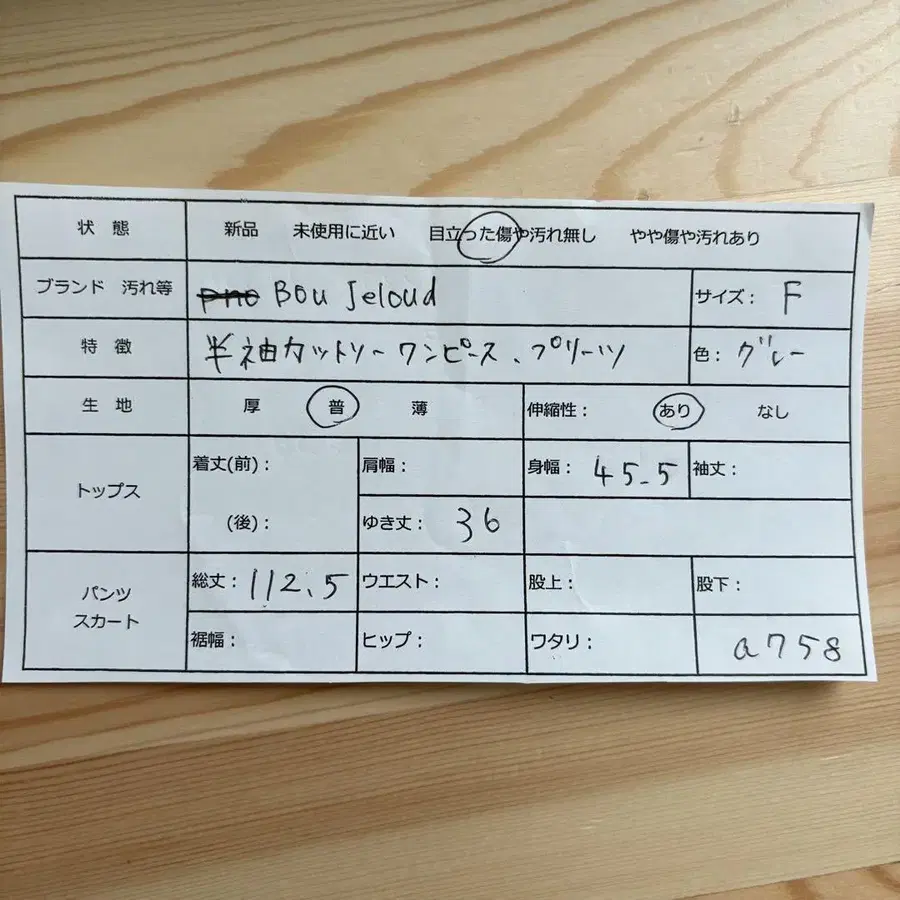 状 態 新品 未使用に近い 目立った傷や汚れ無し やや傷や汚れあり
ブランド 汚れ等 Bou Jeloud サイズ： F
特 徴 半袖カットソーワンピース、プリーツ 色： グレー
生 地 厚 普 薄 伸縮性： あり なし
トップス 着丈(前)： 肩幅： 身幅： 45.5 袖丈：
(後)： ゆき丈： 36
パンツ スカート 総丈： 112.5 ウエスト： 股上： 股下：
裾幅： ヒップ： ワタリ： a758